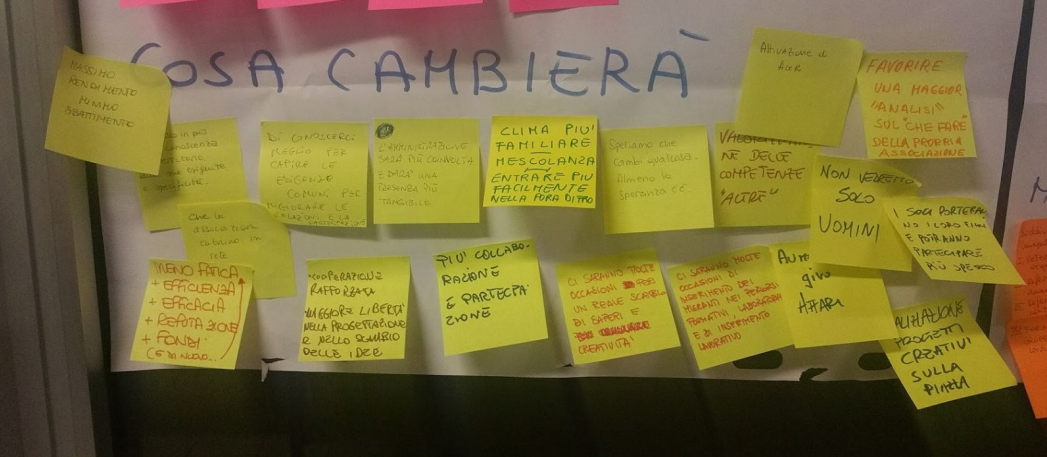 COSA CAMBIERÀ
MASSIMO
RENDIMENTO
MINIMO
SBATTIMENTO
DI CONOSCERCI
MEGLIO PER
CAPIRE LE
ESIGENZE
COMUNI PER
MIGLIORARE LE
RELAZIONI E LA
L'AMMINISTRAZIONE
SARÀ PIÙ COINVOLTA
E DARÀ UNA
PRESENZA PIÙ
TANGIBILE
CLIMA PIU'
FAMILIARE
MESCOLANZA
ENTRARE PIU
FACILMENTE
Speriamo che
cambi qualcosa.
Almeno la
speranza c'è.
NE DELLE
COMPETENZE
"ALTRE"
Attivazione di
FAVORIRE
UNA MAGGIOR
"ANALISI"
SUL "CHE FARE"
DELLA PROPRIA
ASSOCIAZIONE
NON VEDRETE
SOLO
UOMINI
I SOCI PORTERAN
NO I LORO FIGLI
E POTRANNO
PARTECIPARE
PIÙ SPESSO
Che le
associazioni
in
rete
MENO FATICA
+ EFFICIENZA
+ EFFICACIA
+ REPUTAZIONE
+ FONDI
(E DI NUOVO...
COOPERAZIONE
RAFFORZATA
MAGGIORE LIBERTÀ
NELLA PROGETTAZIONE
E NELLO SCAMBIO
DELLE IDEE
PIU' COLLABO-
RAZIONE
E PARTECIPA
ZIONE
CI SARANNO MOLTE
OCCASIONI PER
UN REALE SCAMBIO
DI SAPERI E
CREATIVITÀ
CI SARANNO MOLTE
OCCASIONI DI
INSERIMENTO DEI
MIGRANTI NEI PERCORSI
FORMATIVI LABORATORI
E DI INSERIMENTO
LAVORATIVO
giro
AFFARI
PROGETTI
CREATIVI
SULLA
PIAZZA